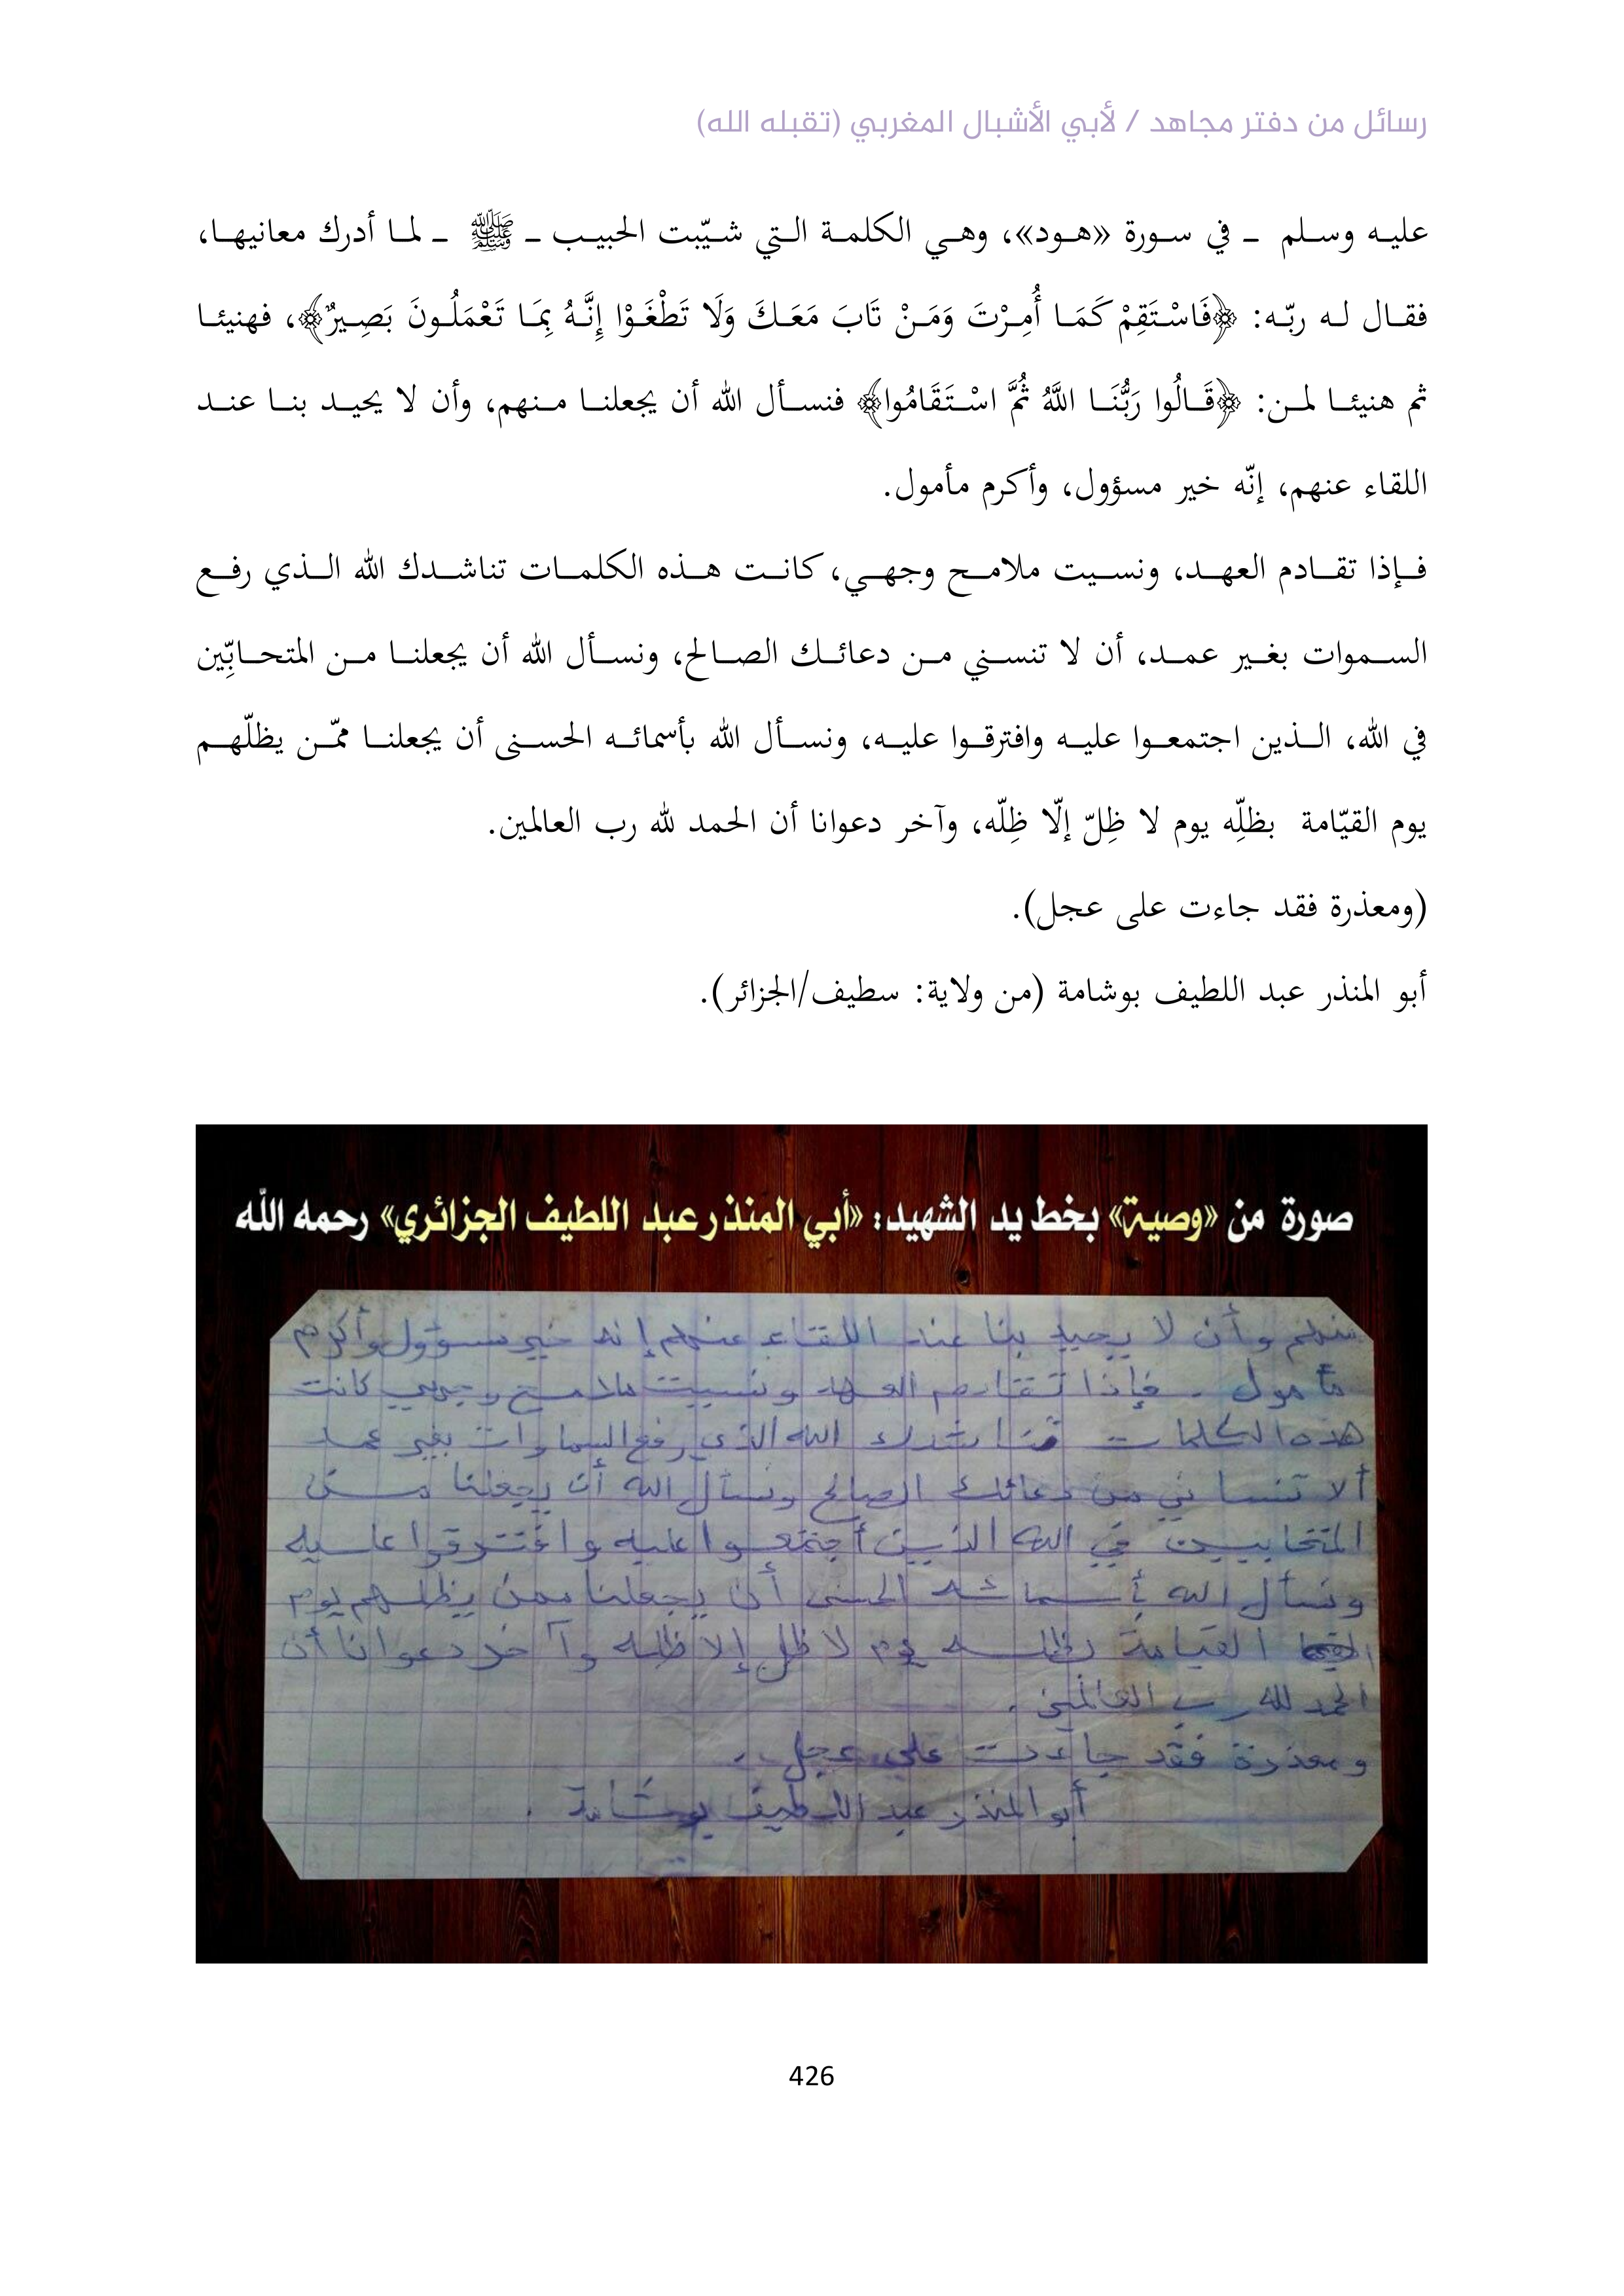 رسائل من دفتر مجاهد / لأبي الأشبال المغربي (تقبله الله)
عليه وسلم ـ في سورة «هود»، وهي الكلمة التي شيّبت الحبيب ـ ﷺ ـ لما أدرك معانيها،
فقال له ربّه: ﴿فَاسْتَقِمْ كَمَا أُمِرْتَ وَمَنْ تَابَ مَعَكَ وَلَا تَطْغَوْا إِنَّهُ بِمَا تَعْمَلُونَ بَصِيرٌ﴾، فهنيئا
ثم هنيئا لمن: ﴿قَالُوا رَبُّنَا اللَّهُ ثُمَّ اسْتَقَامُوا﴾ فنسأل الله أن يجعلنا منهم، وأن لا يحيد بنا عند
اللقاء عنهم، إنّه خير مسؤول، وأكرم مأمول.
فإذا تقادم العهد، ونسيت ملامح وجهي، كانت هذه الكلمات تناشدك الله الذي رفع
السموات بغير عمد، أن لا تنسني من دعائك الصالح، ونسأل الله أن يجعلنا من المتحابِّين
في الله، الذين اجتمعوا عليه وافترقوا عليه، ونسأل الله بأسمائه الحسنى أن يجعلنا ممّن يظلّهم
يوم القيّامة بظلِّه يوم لا ظِلّ إلّا ظِلّه، وآخر دعوانا أن الحمد لله رب العالمين.
(ومعذرة فقد جاءت على عجل).
أبو المنذر عبد اللطيف بوشامة (من ولاية: سطيف/الجزائر).
صورة من «وصية» بخط يد الشهيد: «أبي المنذر عبد اللطيف الجزائري» رحمه الله
منهم وأن لا يحيد بنا عند اللقاء عنهم إنه خير مسؤول وأكرم
مأمول. فإذا تقادم العهد ونسيت ملامح وجهي كانت
هذه الكلمات تناشدك الله الذي رفع السماوات بغير عمد
ألا تنساني من دعائك الصالح ونسأل الله أن يجعلنا من
المتحابين في الله الذين أجتمعوا عليه وافترقوا عليه
ونسأل الله بأسمائه الحسنى أن يجعلنا ممن يظلهم يوم
القيامة بظله يوم لا ظل إلا ظله وآخر دعوانا أن
الحمد لله رب العالمين.
ومعذرة فقد جاءت على عجل.
أبو المنذر عبد اللطيف بوشامة.
426